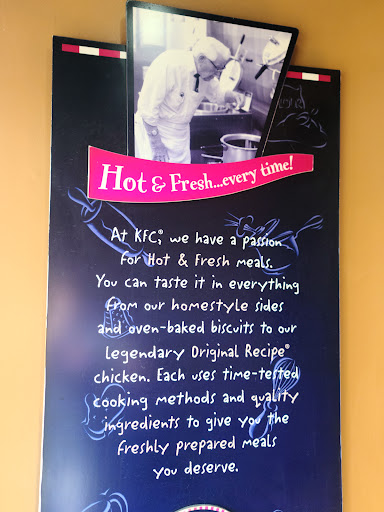 Hot & Fresh...every time!
At KFC®, we have a passion
for Hot & Fresh meals.
You can taste it in everything
from our homestyle sides
and oven-baked biscuits to our
legendary Original Recipe®
chicken. Each uses time-tested
cooking methods and quality
ingredients to give you the
freshly prepared meals
you deserve.